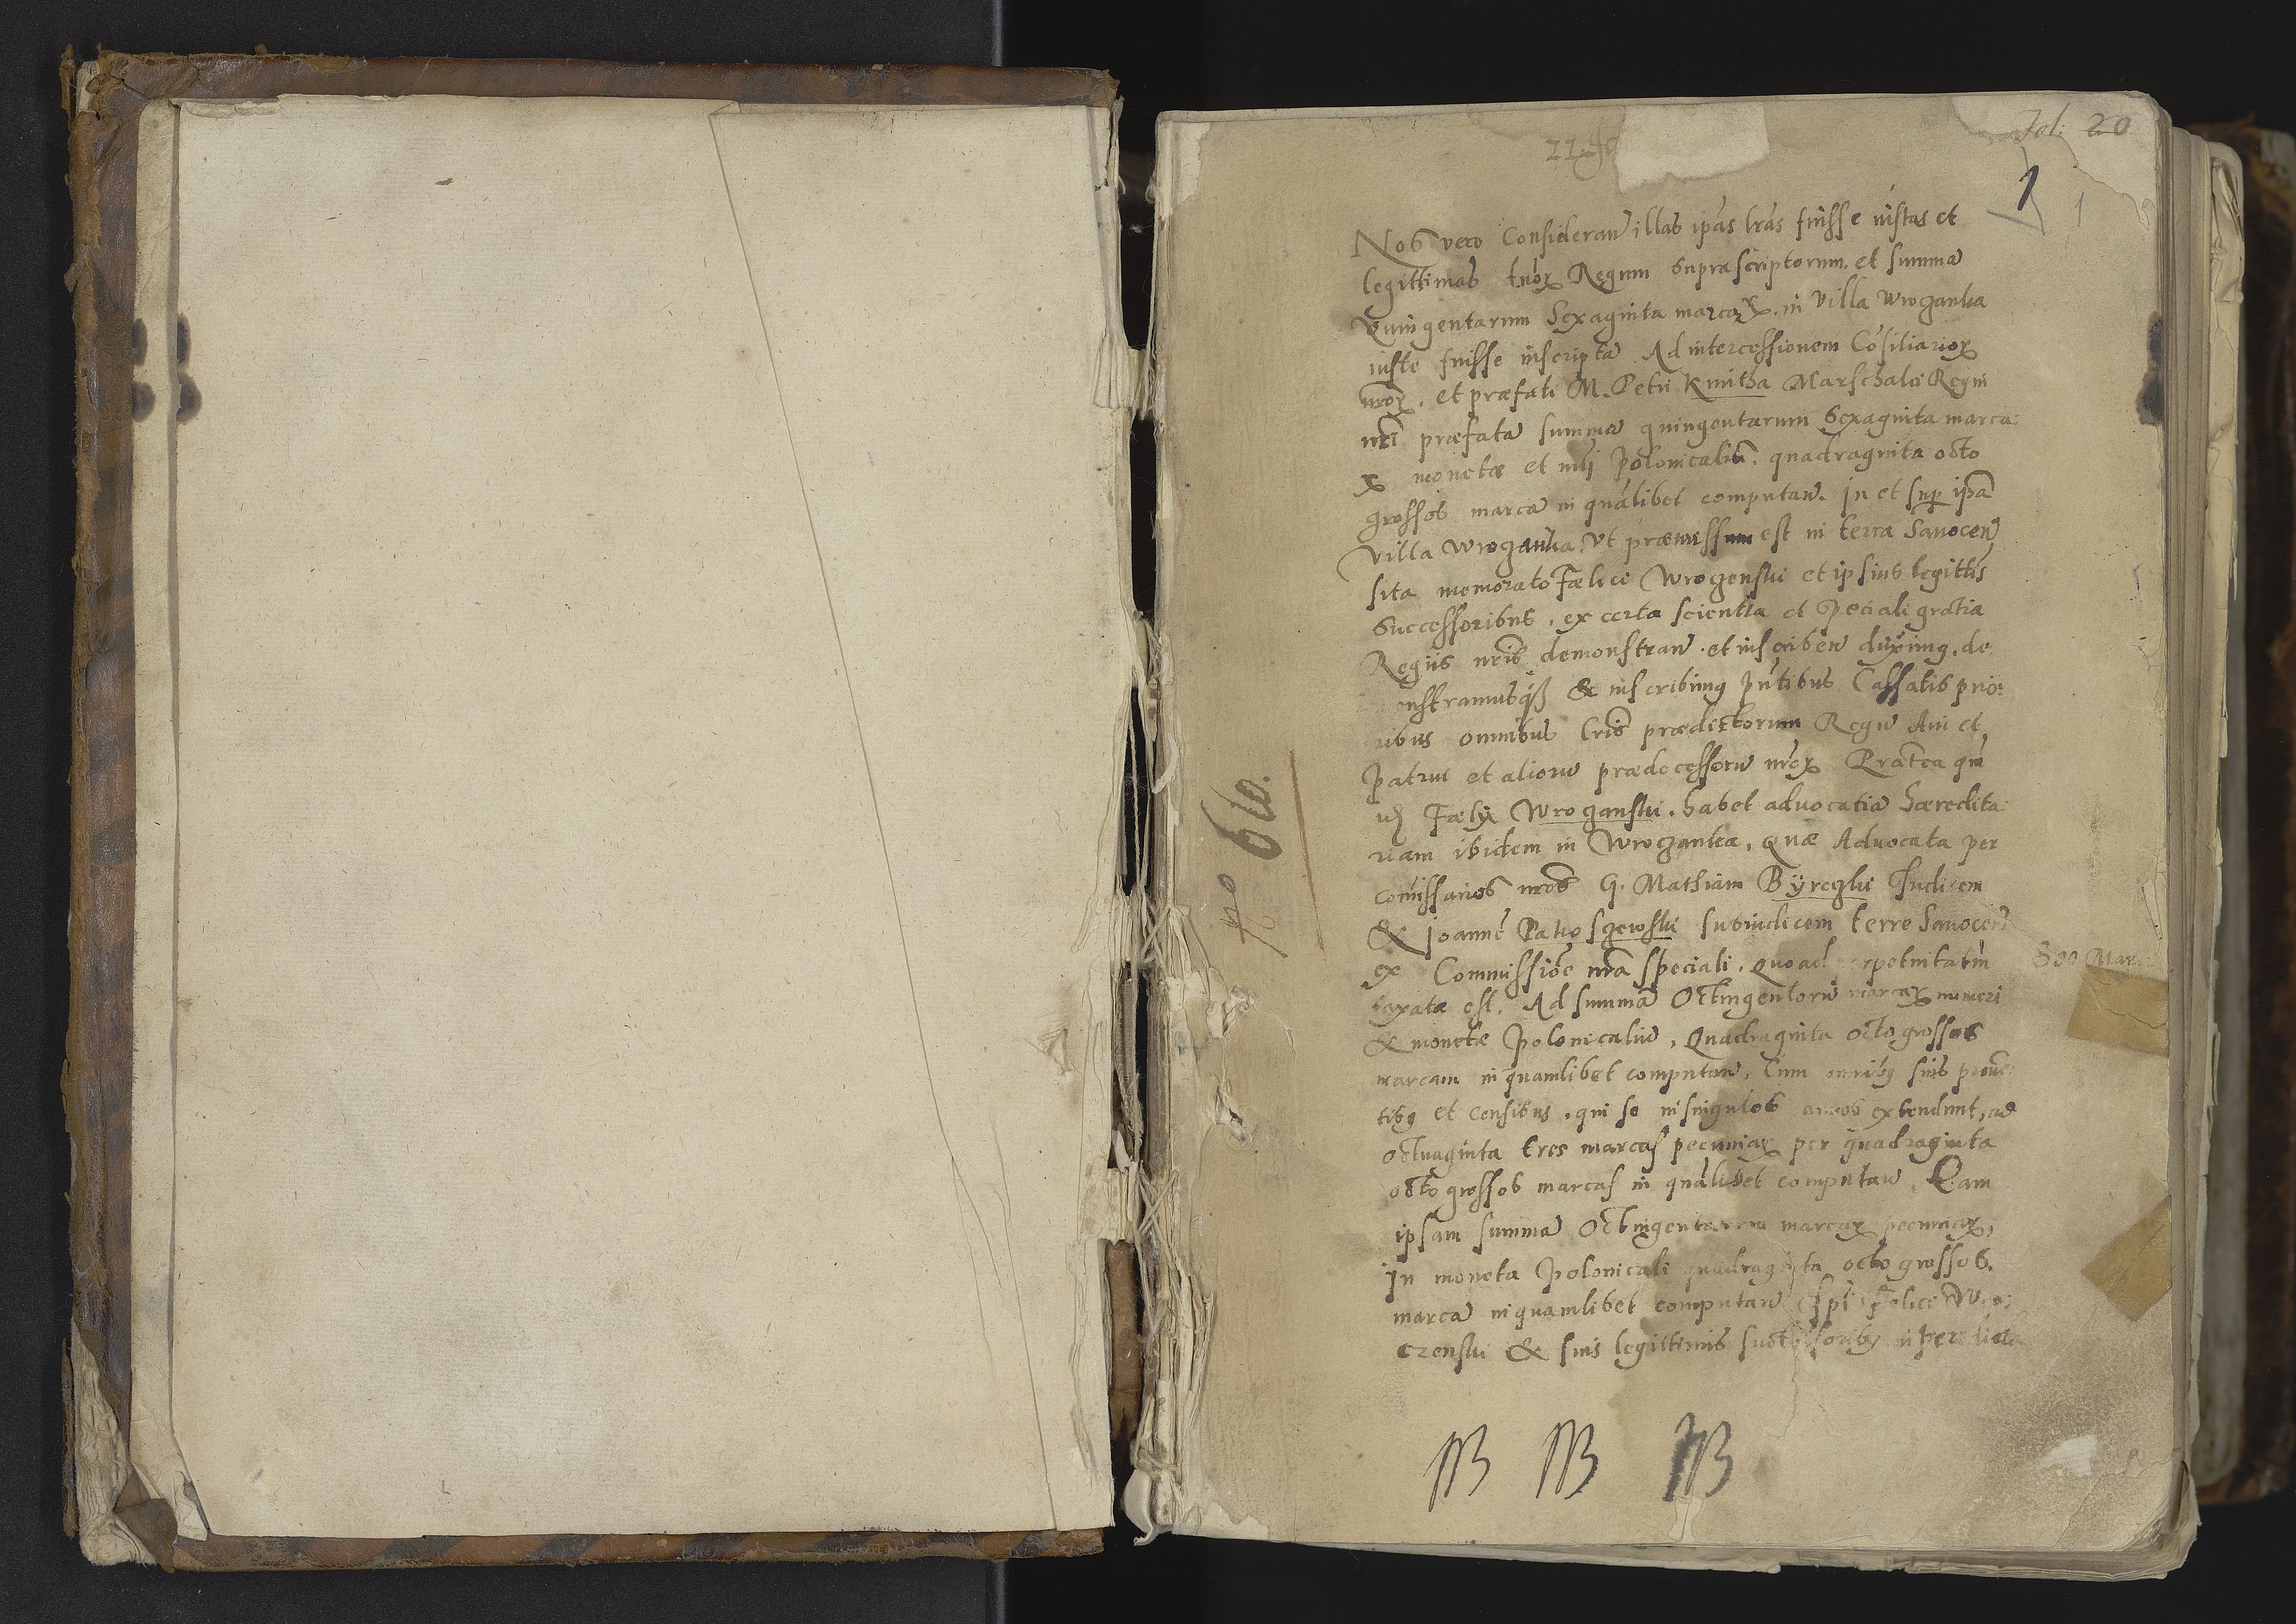 Fol: 20
1
1
Nos vero Consideran illas ipãs lrãs fuisse iustas et
legittimas Regum Suprascriptorum. et summa
Quingentarum Sexaginta marcarx. in Villa Wroganka
iuste fuisse inscripta Ad intercessionem Cõsiliariorx
nrorx. et præfati M. Petri Kmitha Marschalci Regni
nrĩ præfata summa quingentarum Sexaginta marca
rx monetæ et nũi Polonicaliũ. quadraginta octo
grossos marca in quãlibet computan. In et sup ipã
Villa Wroganka, Vt præmissum est in terra Sanocen
sita memorato Fælici Wrogenski et ipsius legittis
Successoribus, ex certa scientia et speciali gratia
Regiis nrĩs demonstran. et inscriben duximg, de
monstramusqȝ & inscribimg pñtibus Cassatis prio:
ribus omnibus lrĩs prædictorum Regu Aui et
patrui et alioru prædecessoru nrorx Præterea qm̃
Fælix Wroganski. habet aduocatia hæredita
riam ibidem in Wroganka, quæ Aduocata per
comissarios nros G. Mathiam Byregki Iudicem
& Joannẽ Pakosgewski subiudicem terre Sanocen
ex Commissiõe nrã speciali, quoad perpetuitatẽm
800 Marc
taxata est. Ad summã Octingentoru marcarx numeri
& monetæ Polonicaliu, Quadraginta octo grossos
marcam in quamlibet computan, Cum omnibg suis prouẽ
tibg et Censibus, qui se in singulos annos extendunt, ad
octuaginta tres marcas pecuniarx per quadraginta
octo grossos marcas in quãlibet computan. Quam
ipsam summa Octingentarum marcarx pecuniarx,
In moneta Polonicali quadraginta octo grossos.
marca in quamlibet computan Ipi Felici Wro:
czenski & suis legittimis successoribg